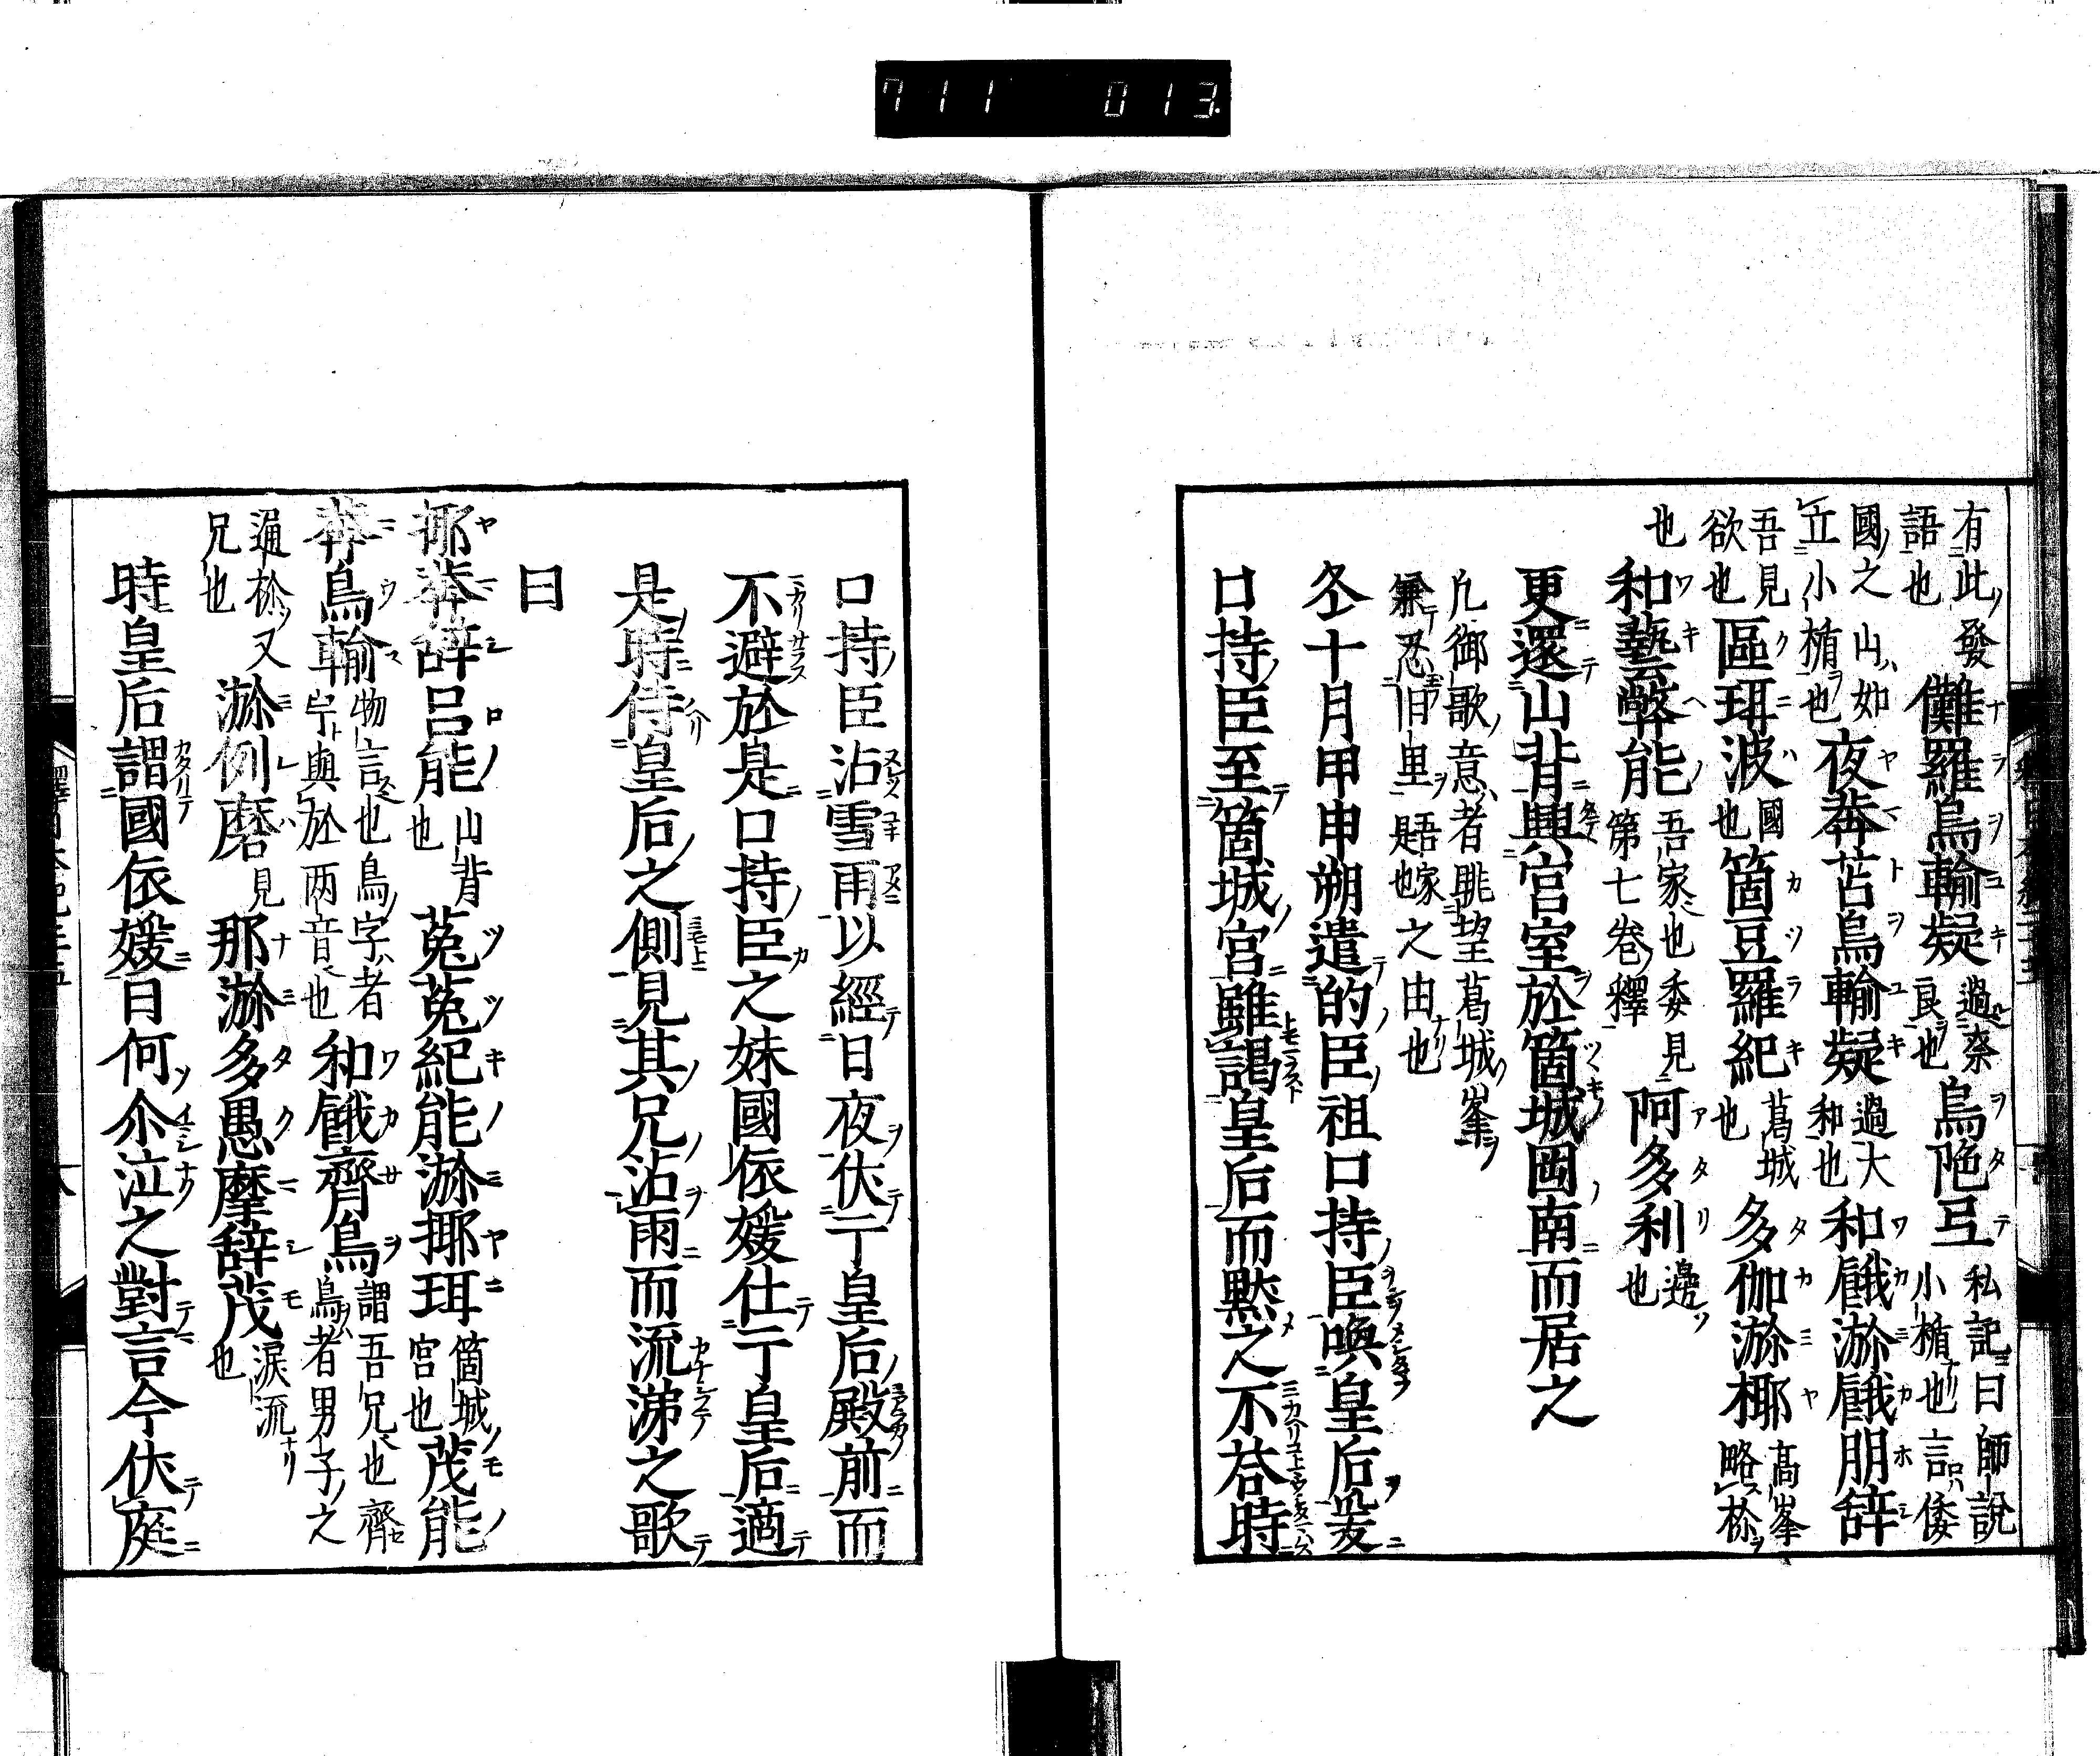 711 013
有此發語也 儺羅烏輸凝 過奈良也 烏陁弖 私記曰師說小楯也言倭
國之山如立小楯也 夜莾苫烏輸凝 過大和也 和餓游餓朋辞
吾見欲也 區珥波 國也 箇豆羅紀 葛城也 多伽游椰 高峯略椋
也 和藝弊能 吾家也委見第七卷釋 阿多利 邊也
更還山背興宮室於箇城岡南而居之
凡御歌意者眺望葛城峯
兼忍旧里 之由也
冬十月甲申朔遣的臣祖口持臣喚皇后爰
口持臣至箇城宮雖謁皇后而黙之不荅時
口持臣沾雪雨以經日夜伏于皇后殿前而
不避於是口持臣之妹國依媛仕于皇后適
是時侍皇后之側見其兄沾雨而流涕之歌
曰
揶莾辞呂能 山背也 菟菟紀能游揶珥 箇城宮也 茂能
莾烏輸 物言也烏字者与與於两音也 和餓齊烏 謂吾兄也齊烏者男子之
通 又兄也 游例磨 見 那游多愚摩辞茂 涙流也
時皇后謂國依媛曰何尒泣之對言今伏庭